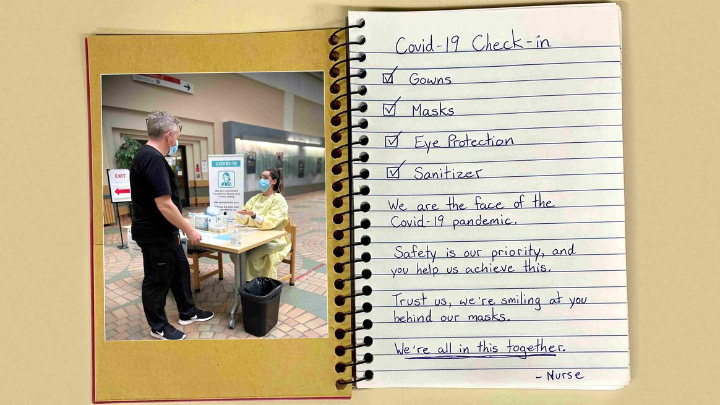 EXIT
COVID-19
Covid-19 Check-in
Gowns
Masks
Eye Protection
Sanitizer
We are the face of the
Covid-19 pandemic.
Safety is our priority, and
you help us achieve this.
Trust us, we're smiling at you
behind our masks.
We're all in this together.
- Nurse